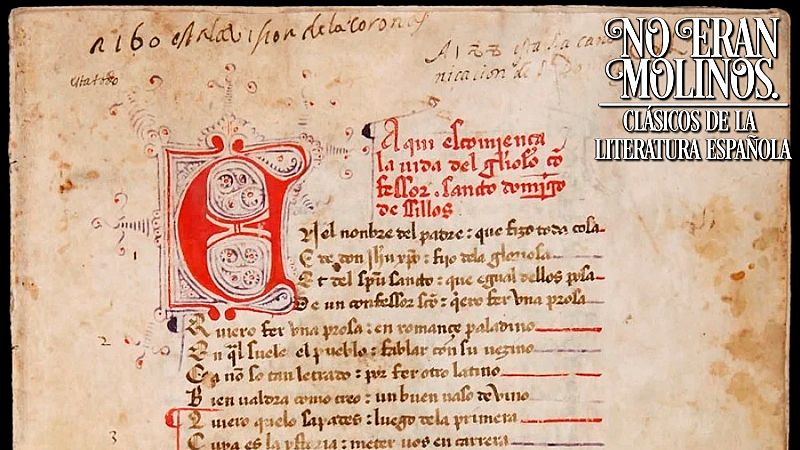 A 160 esta la vision de las coronas
A 188 esta la cano
nicacion de Sto Dgo
esta todo
NO ERAN
MOLINOS.
CLÁSICOS DE LA
LITERATURA ESPAÑOLA
Aqui escomiença
la uida del glioso cõ
fessor. sancto domĩgo
de Sillos
EN el nonbre del padre: que fizo toda cosa
E de don jhu xpo: fijo dela gloriosa
Et del spũ sancto: que egual dellos posa
De un confessor scõ: q̃ero fer vna prosa
1
Quiero fer vna prosa: en romançe paladino
En q̃l suele el pueblo: fablar con su vezino
Ca nõ so tan letrado: por fer otro latino
Bien valdra como creo: un buen vaso de vino
2
Quiero quelo sapades: luego dela primera
Cuya es la ystoria: meter uos en carrera
3